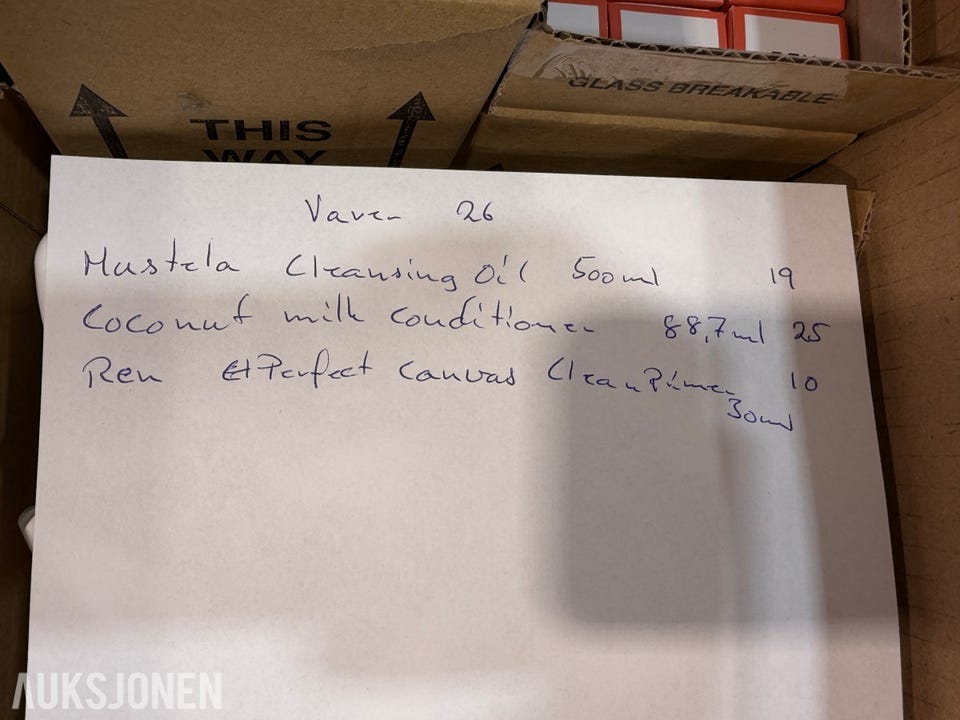 GLASS BREAKABLE
THIS
WAY
Varer 26
Mustela Cleansing Oil 500ml 19
Coconut milk conditioner 88,7ml 25
Ren Perfect Canvas Clean Primer 10
30ml
AUKSJONEN